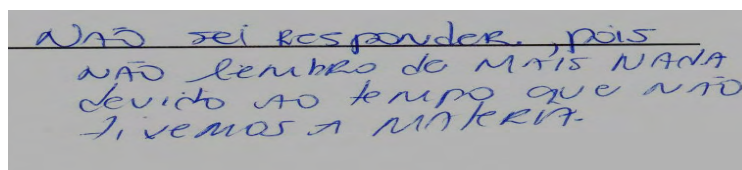 NÃO sei RESPONDER, pois
NÃO lembro de MAIS NANA
devido AO tempo que NÃO
tivemos A MATERIA.